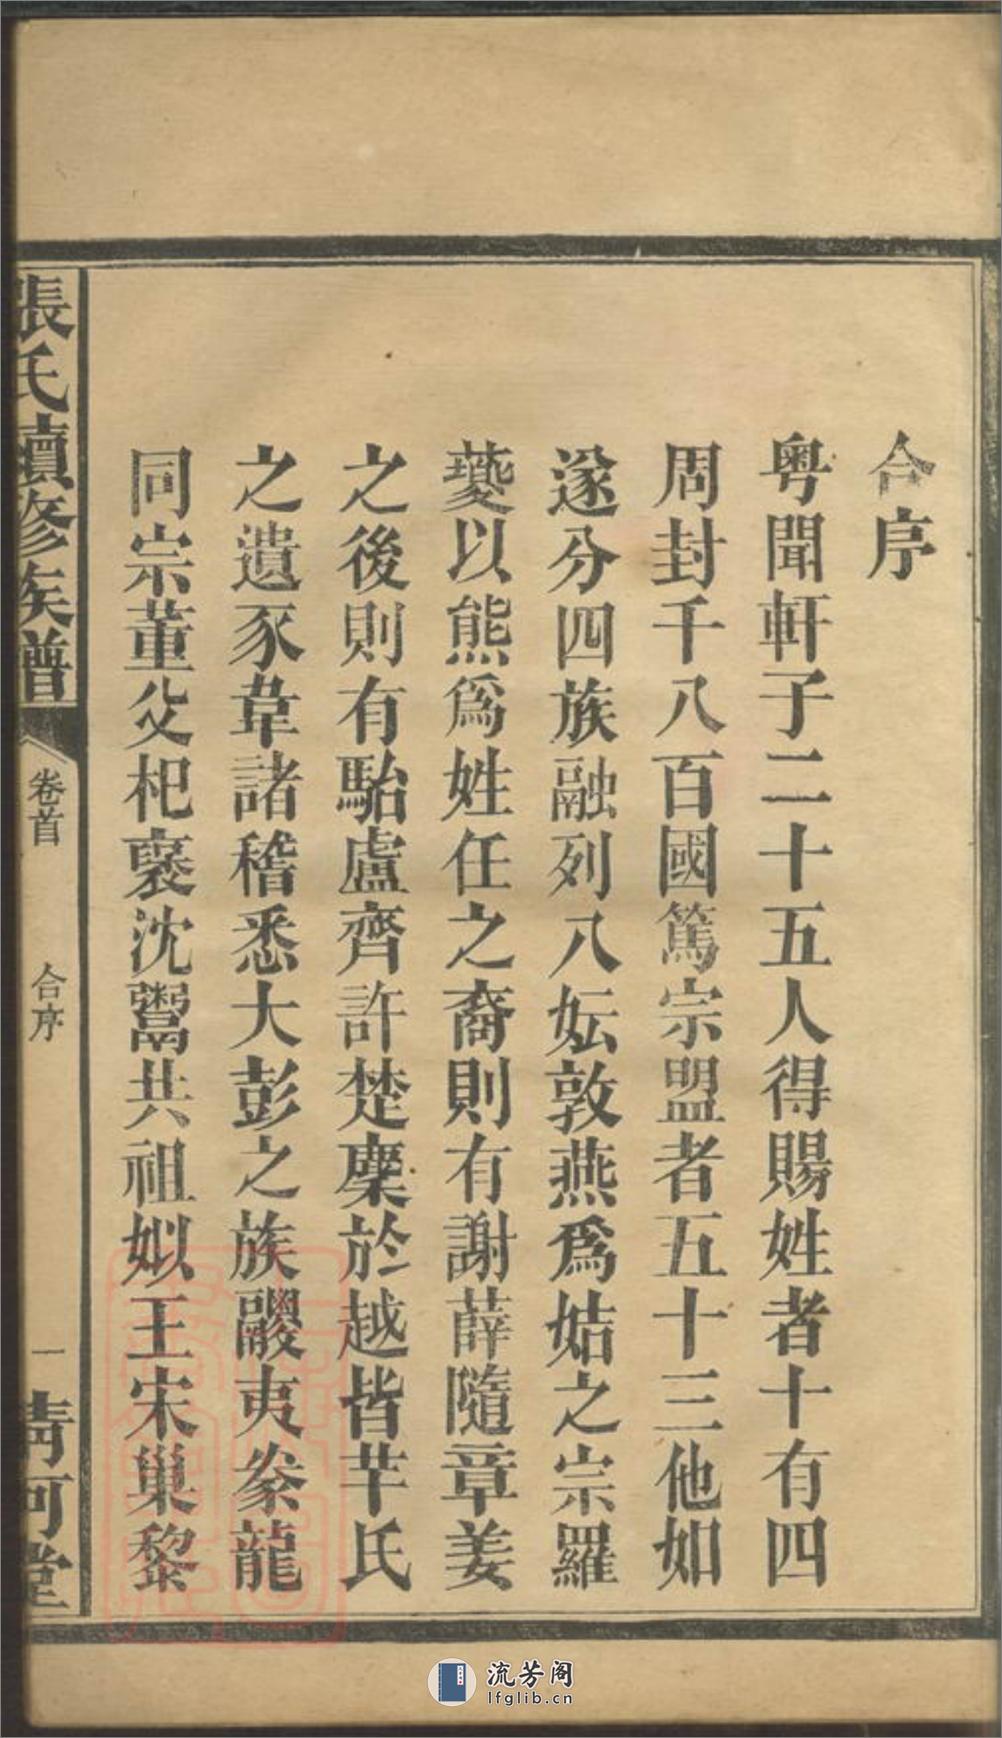 合序
粤聞軒子二十五人得賜姓者十有四
周封千八百國篤宗盟者五十三他如
遂分四族融列八妘敦燕爲姞之宗羅
夔以熊爲姓任之裔則有謝薛隨章姜
之後則有駘盧齊許楚麇於越皆芈氏
之遺豕韋諸稽悉大彭之族鬷夷豢龍
同宗董父杞襃沈鬻共祖姒王宋巢黎
張氏續修族譜
卷首
合序
一
清河堂
流芳阁
lfglib.cn